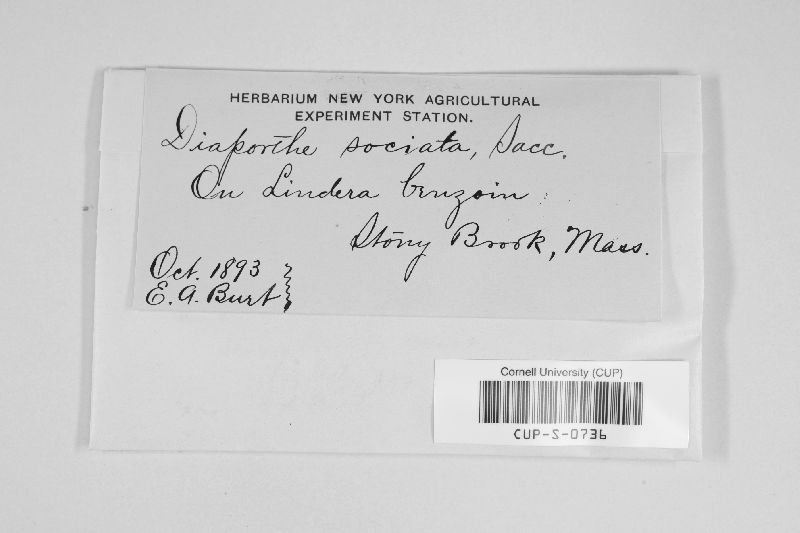 HERBARIUM NEW YORK AGRICULTURAL
EXPERIMENT STATION.
Diaporthe sociata, Sacc.
On Lindera benzoin
Stony Brook, Mass.
Oct. 1893
E. A. Burt
Cornell University (CUP)
CUP-S-0736